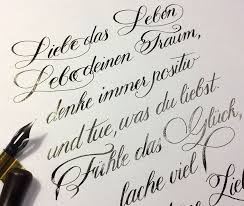 Liebe das Leben
Lebe deinen Traum,
denke immer positiv
und tue, was du liebst.
Fühle das Glück,
lache viel
Liebe